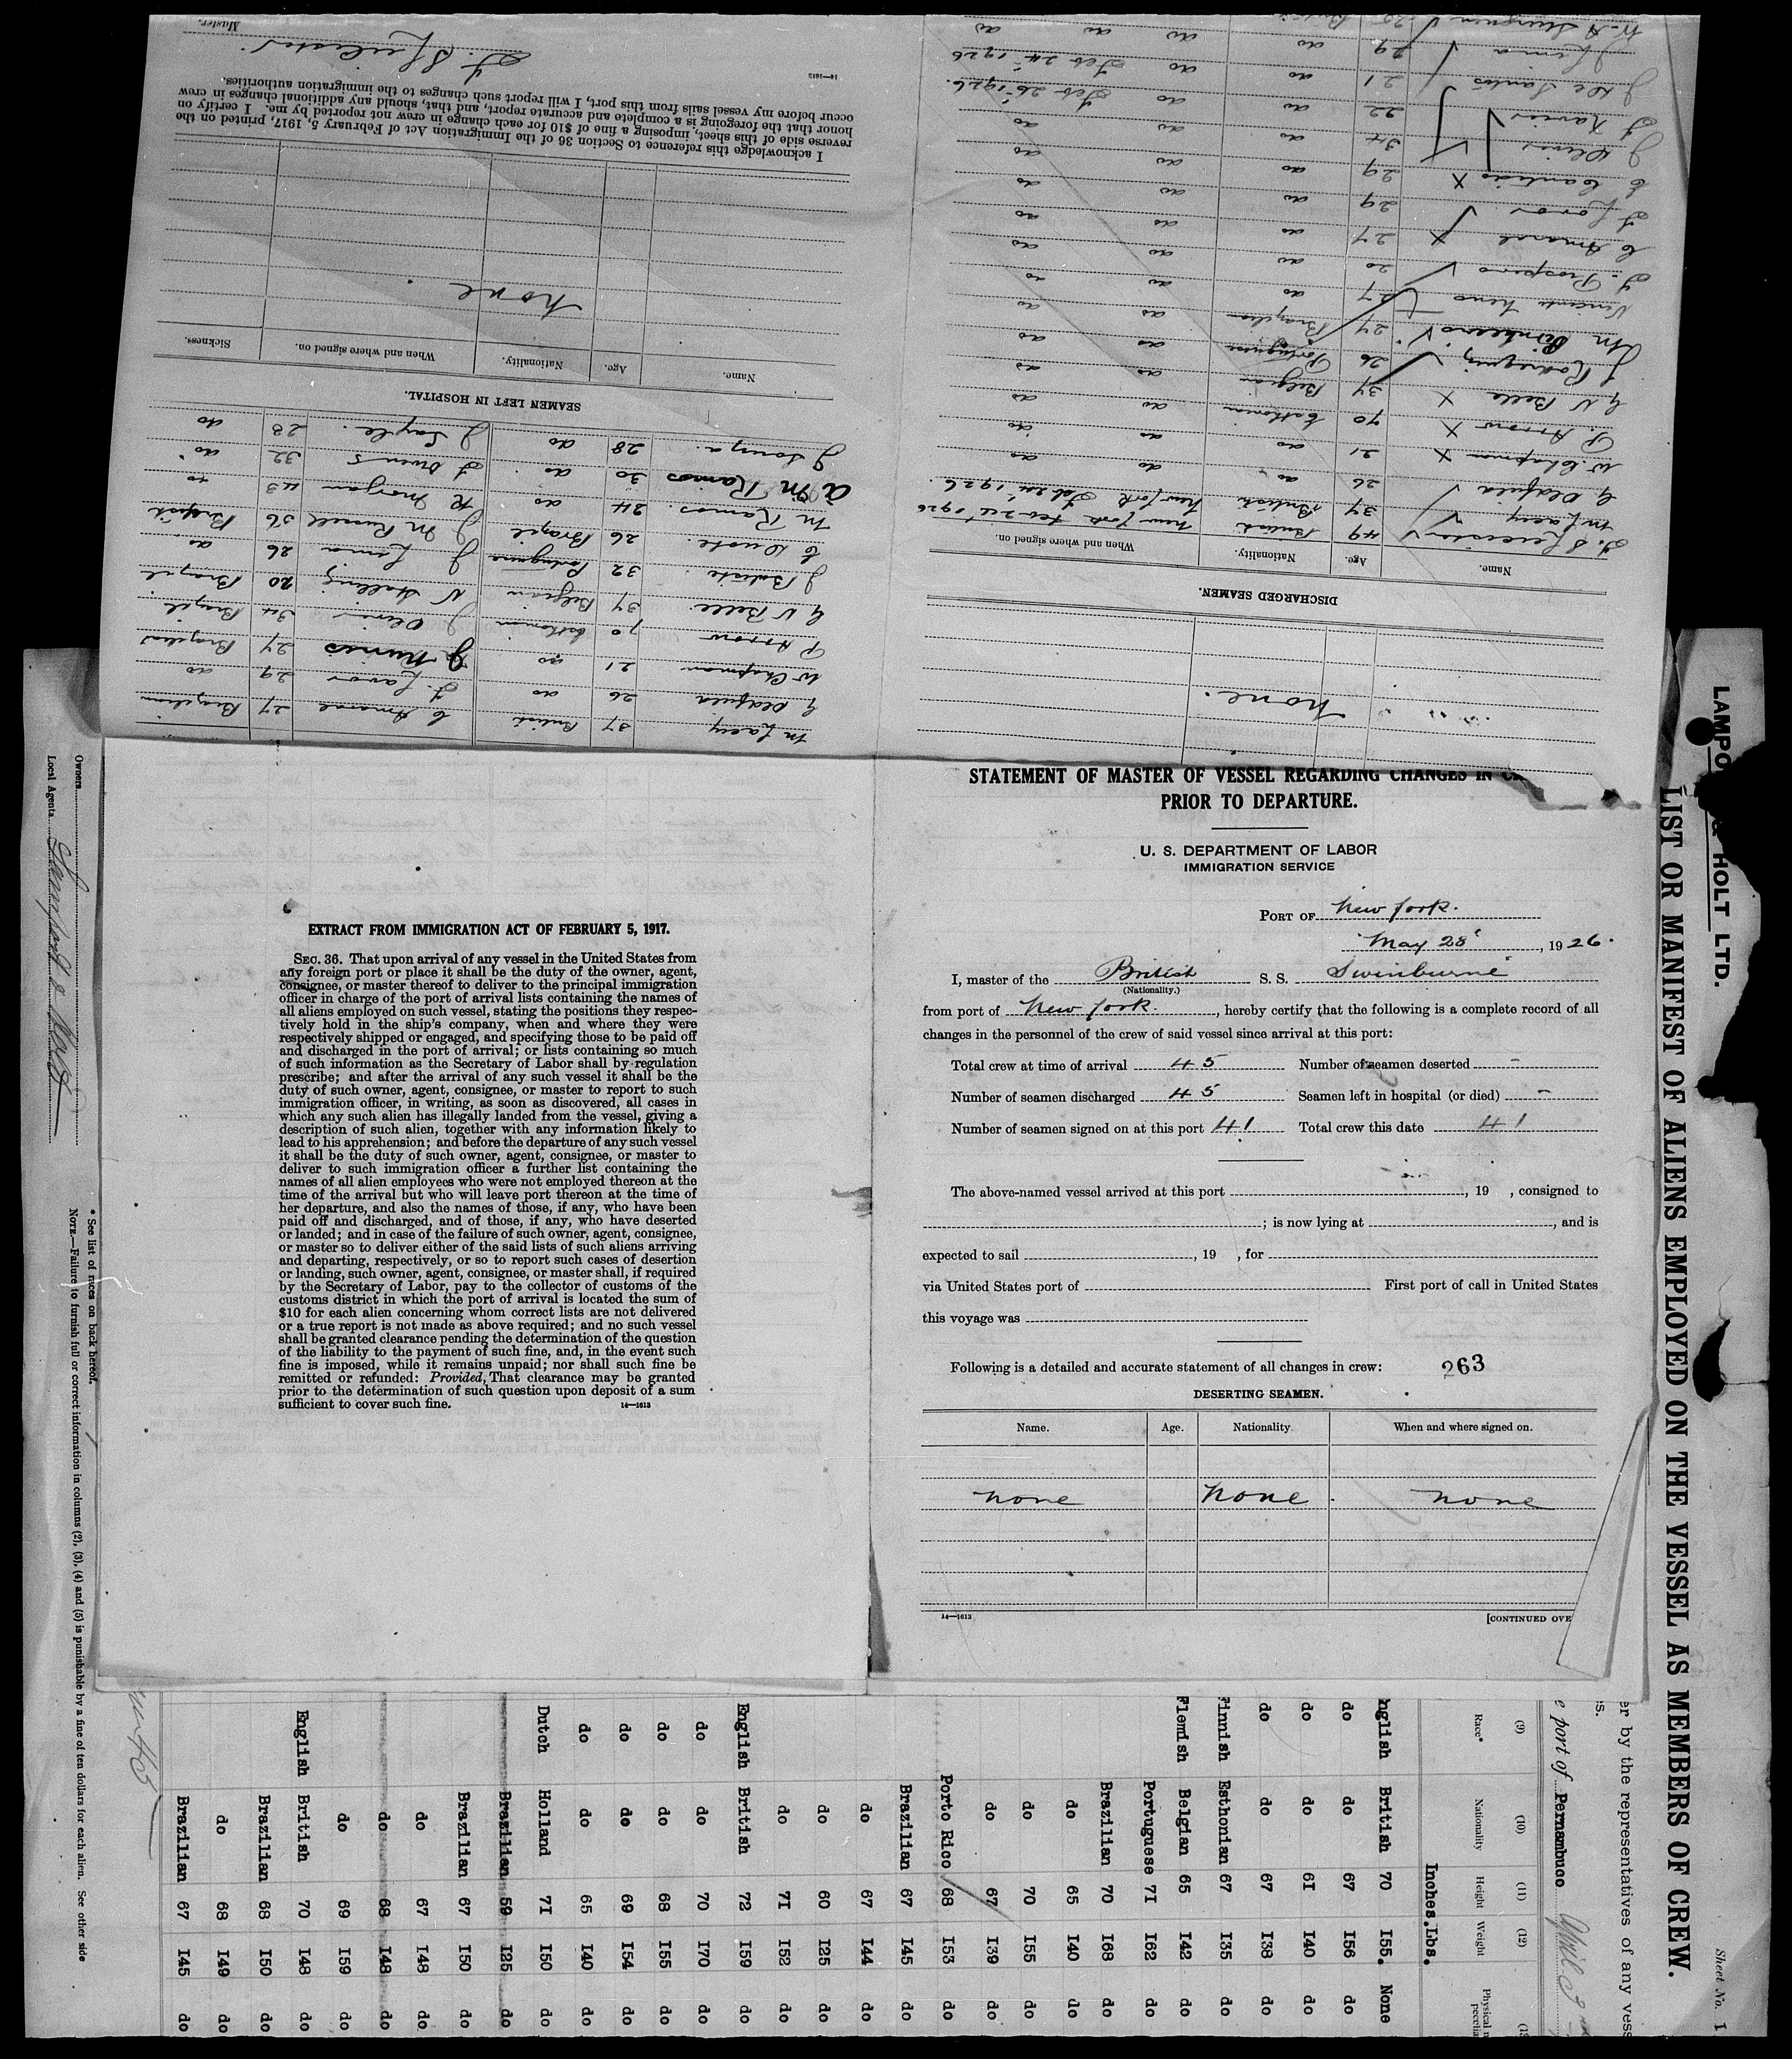 STATEMENT OF MASTER OF VESSEL REGARDING CHANGES IN
PRIOR TO DEPARTURE.
U. S. DEPARTMENT OF LABOR
IMMIGRATION SERVICE
PORT OF New York.
May 28, 1926.
I, master of the British S. S. Swinburne
(Nationality.)
from port of New York., hereby certify that the following is a complete record of all
changes in the personnel of the crew of said vessel since arrival at this port:
Total crew at time of arrival 45 Number of seamen deserted -
Number of seamen discharged 45 Seamen left in hospital (or died) -
Number of seamen signed on at this port 41 Total crew this date 41
The above-named vessel arrived at this port , 19 , consigned to
; is now lying at , and is
expected to sail , 19 , for
via United States port of First port of call in United States
this voyage was
Following is a detailed and accurate statement of all changes in crew:
263
DESERTING SEAMEN.
Name. Age. Nationality When and where signed on.
none none. none
14—1613 [CONTINUED OVE
EXTRACT FROM IMMIGRATION ACT OF FEBRUARY 5, 1917.
SEC. 36. That upon arrival of any vessel in the United States from
any foreign port or place it shall be the duty of the owner, agent,
consignee, or master thereof to deliver to the principal immigration
officer in charge of the port of arrival lists containing the names of
all aliens employed on such vessel, stating the positions they respec-
tively hold in the ship's company, when and where they were
respectively shipped or engaged, and specifying those to be paid off
and discharged in the port of arrival; or lists containing so much
of such information as the Secretary of Labor shall by regulation
prescribe; and after the arrival of any such vessel it shall be the
duty of such owner, agent, consignee, or master to report to such
immigration officer, in writing, as soon as discovered, all cases in
which any such alien has illegally landed from the vessel, giving a
description of such alien, together with any information likely to
lead to his apprehension; and before the departure of any such vessel
it shall be the duty of such owner, agent, consignee, or master to
deliver to such immigration officer a further list containing the
names of all alien employees who were not employed thereon at the
time of the arrival but who will leave port thereon at the time of
her departure, and also the names of those, if any, who have been
paid off and discharged, and of those, if any, who have deserted
or landed; and in case of the failure of such owner, agent, consignee,
or master so to deliver either of the said lists of such aliens arriving
and departing, respectively, or so to report such cases of desertion
or landing, such owner, agent, consignee, or master shall, if required
by the Secretary of Labor, pay to the collector of customs of the
customs district in which the port of arrival is located the sum of
$10 for each alien concerning whom correct lists are not delivered
or a true report is not made as above required; and no such vessel
shall be granted clearance pending the determination of the question
of the liability to the payment of such fine, and, in the event such
fine is imposed, while it remains unpaid; nor shall such fine be
remitted or refunded: Provided, That clearance may be granted
prior to the determination of such question upon deposit of a sum
sufficient to cover such fine.
14—1613
none.
DISCHARGED SEAMEN.
Name. Age. Nationality. When and where signed on.
49 British New York Feb 24 1926
M Lacey 37 British New York Feb 24 1926.
26 do do do
W. Chapman 21 do do do
P. Arrow 70 Esthonian do do
G V Belle 34 Belgian do do
J Rodrigues 26 Portuguese do do
24 Brazilian do do
Vincente 27 do do do
Prospero 20 do do do
C Amaral 27 do do do
29 do do do
29 do do do
J Oliver 34 do do do
J Xavier 22 do do Feb 26 1926.
J De Santos 21 do do Feb 24 1926
J Lima 29 do do do
M Lacey 37 British C Amaral 27 Brazilian
26 do 29 do
W Chapman 21 do 27 Brazilian
P Arrow 70 Esthonian J Oliver 34 Brazil
G V Belle 34 Belgian 20 Brazil
J 32 Portuguese J 26 do
C Duote. 26 Brazil J M Russell 56 British
M Ramos. 24 do R Morgan 43 do
A M Ramos 30 do Owens 32 do
J Souza. 28 do J Sayle. 28 do
SEAMEN LEFT IN HOSPITAL.
Name. Age. Nationality. When and where signed on. Sickness.
none
I acknowledge this reference to Section 36 of the Immigration Act of February 5, 1917, printed on the
reverse side of this sheet, imposing a fine of $10 for each change in crew not reported by me. I certify on
honor that the foregoing is a complete and accurate report, and that, should any additional changes in crew
occur before my vessel sails from this port, I will report such changes to the immigration authorities.
14—1613
Master.
LAMPO & HOLT LTD.
Sheet No. 1
LIST OR MANIFEST OF ALIENS EMPLOYED ON THE VESSEL AS MEMBERS OF CREW.
er by the representatives of any vess
s.
e port of Pernambuco April 3
(9) (10) (11) (12)
Race* Nationality Height Weight Physical
Inches. Lbs.
nglish British 70 155. None
do do 67 156 do
do do 61 140 do
do do 67 138 do
Finnish Esthonian 67 135 do
Flemish Belgian 65 142 do
Portuguese 71 162 do
Brazilian 70 168 do
do 65 140 do
do 70 155 do
do 67 139 do
Porto Rico 68 153 do
Brazilian 67 145 do
do 67 144 do
do 60 125 do
do 71 152 do
English British 72 159 do
do do 70 170 do
do do 68 155 do
do do 69 154 do
do do 65 140 do
Dutch Holland 71 150 do
Brazilian 59 125 do
Brazilian 67 150 do
do 67 148 do
do 68 148 do
do 69 159 do
English British 70 148 do
Brazilian 68 150 do
do 68 149 do
Brazilian 67 145 do
* See list of races on back hereof.
NOTE.—Failure to furnish full or correct information in columns (2), (3), (4) and (5) is punishable by a fine of ten dollars for each alien. See other side
Owners
Local Agents Lamport & Holt